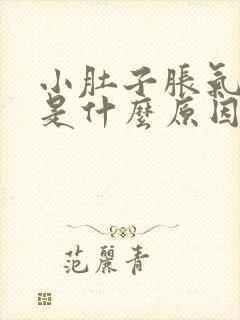 小肚子脹氣
是什麼原因
范麗青